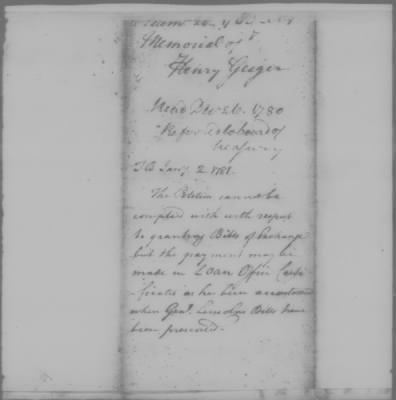 Memorial of
Henry Geiger
Read Dec 26. 1780
Referred to board of
treasury
T.B. Jany 2. 1781.
The Petition cannot be
complied with with respect
to granting Bills of Exchange
but the payment may be
made in Loan Office Certi
-ficates as has been accustomed
when Genl. Lincolns Bills have
been presented.